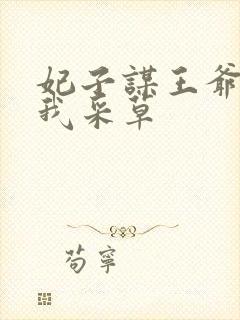 妃子謀王爺
我采草
苟寧